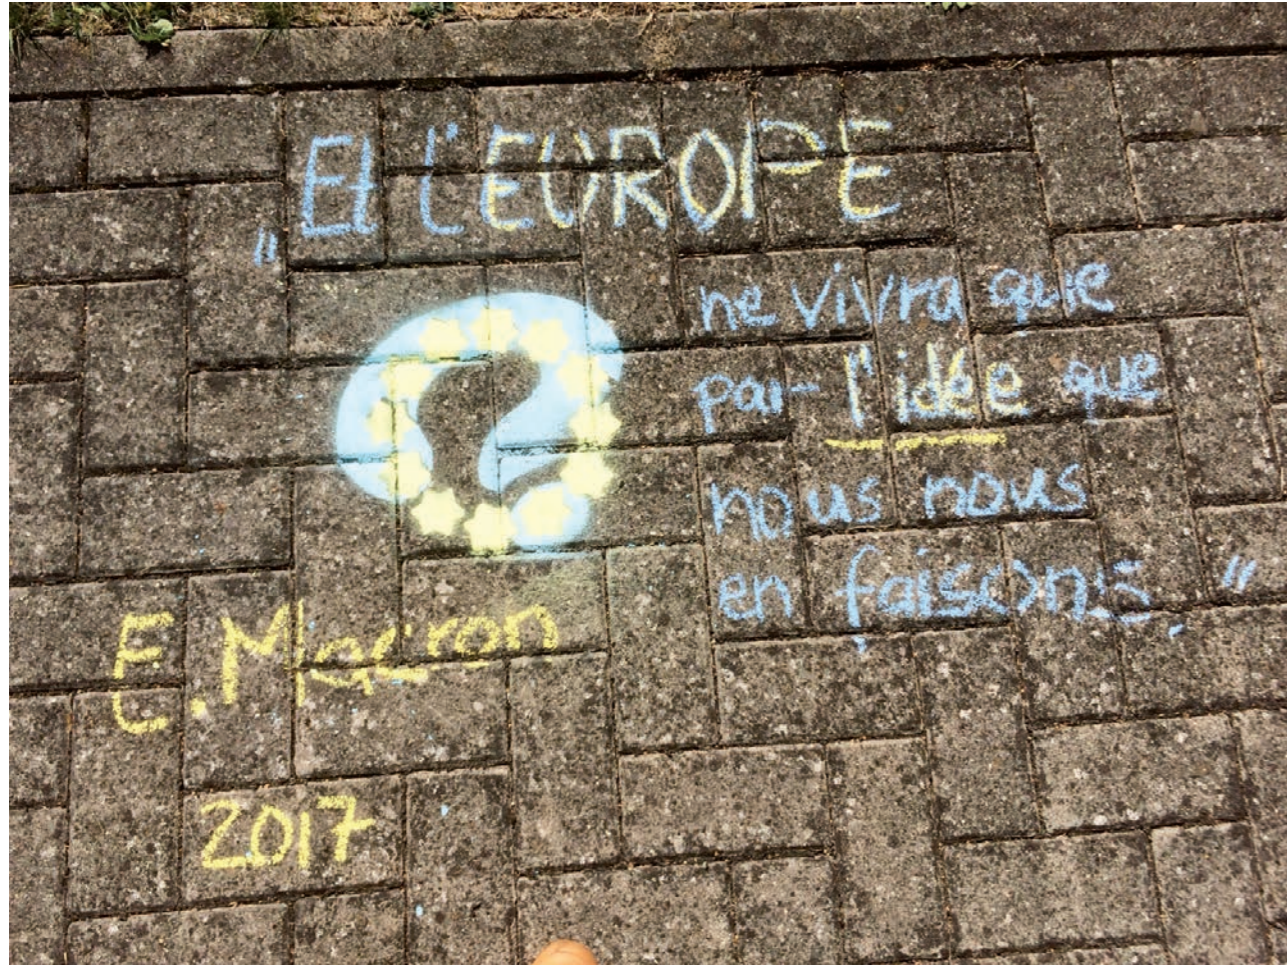 „Et l'EUROPE
ne vivra que
par l'idée que
nous nous
en faisons."
E. Macron
2017